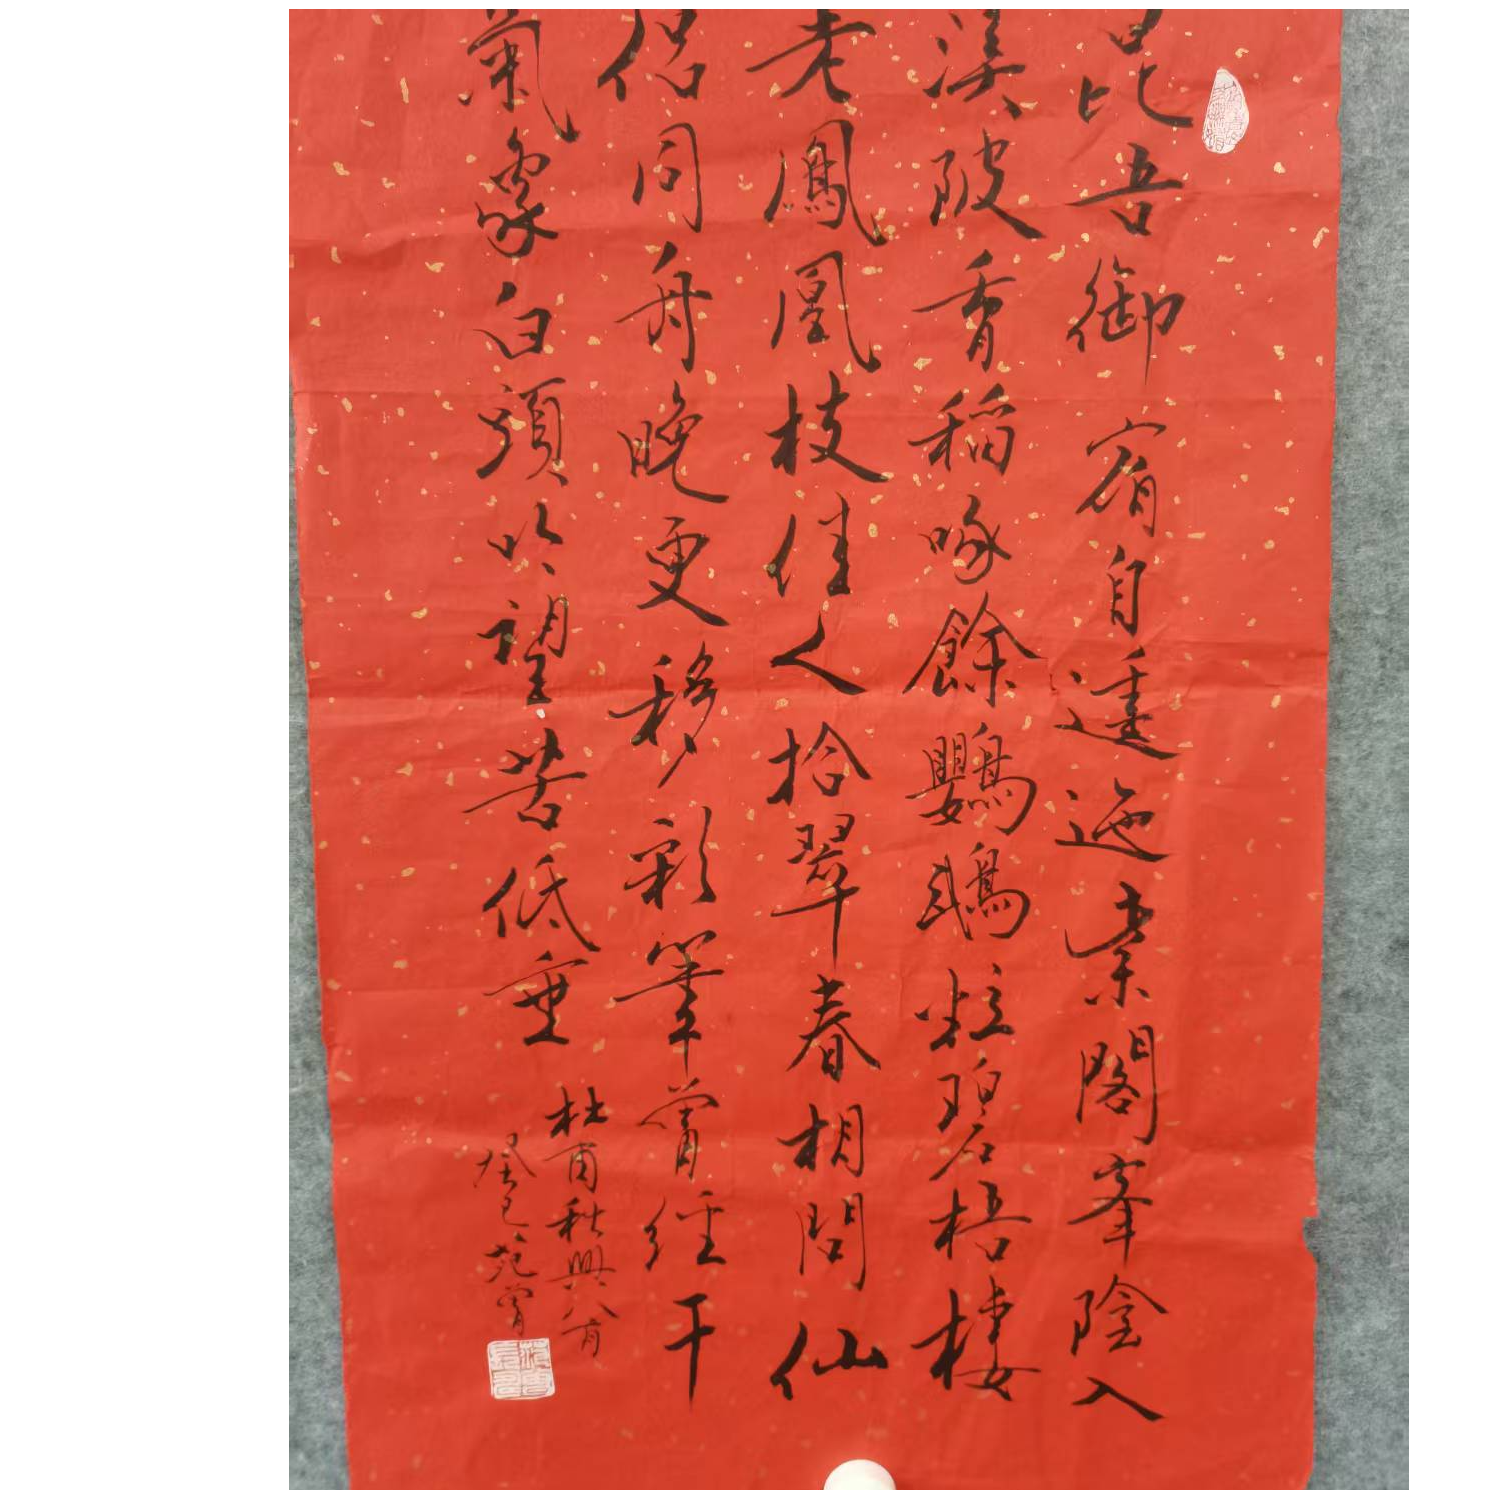 昆吾御宿自逶迤紫閣峯陰入
渼陂香稻啄餘鸚鵡粒碧梧棲
老鳳凰枝佳人拾翠春相問仙
侶同舟晚更移彩筆曾經干
氣象白頭吟望苦低垂
杜甫秋興八首
癸巳范曾